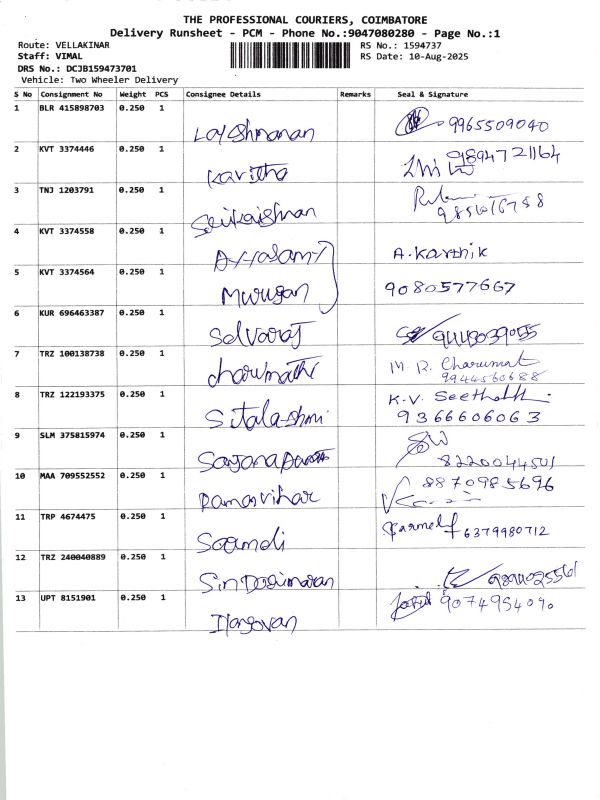 THE PROFESSIONAL COURIERS, COIMBATORE
Delivery Runsheet - PCM - Phone No.:9047080280 - Page No.:1
Route: VELLAKINAR RS No.: 1594737
Staff: VIMAL RS Date: 10-Aug-2025
DRS No.: DCJB159473701
Vehicle: Two Wheeler Delivery
S No Consignment No Weight PCS Consignee Details Remarks Seal & Signature
1 BLR 415898703 0.250 1 9965509040
2 KVT 3374446 0.250 1 Kavitha 9894721164
3 TNJ 1203791 0.250 1
4 KVT 3374558 0.250 1 A. Karthik
5 KVT 3374564 0.250 1 Murugan 9080577667
6 KUR 696463387 0.250 1 Selvaraj
7 TRZ 100138738 0.250 1 charumathi M. R. Charumat
9944560688
8 TRZ 122193375 0.250 1 K.V.
9366606063
9 SLM 375815974 0.250 1 8220044501
10 MAA 709552552 0.250 1 Ramasvihar 8870985696
11 TRP 4674475 0.250 1 6379980712
12 TRZ 240040889 0.250 1
13 UPT 8151901 0.250 1 Ilangovan